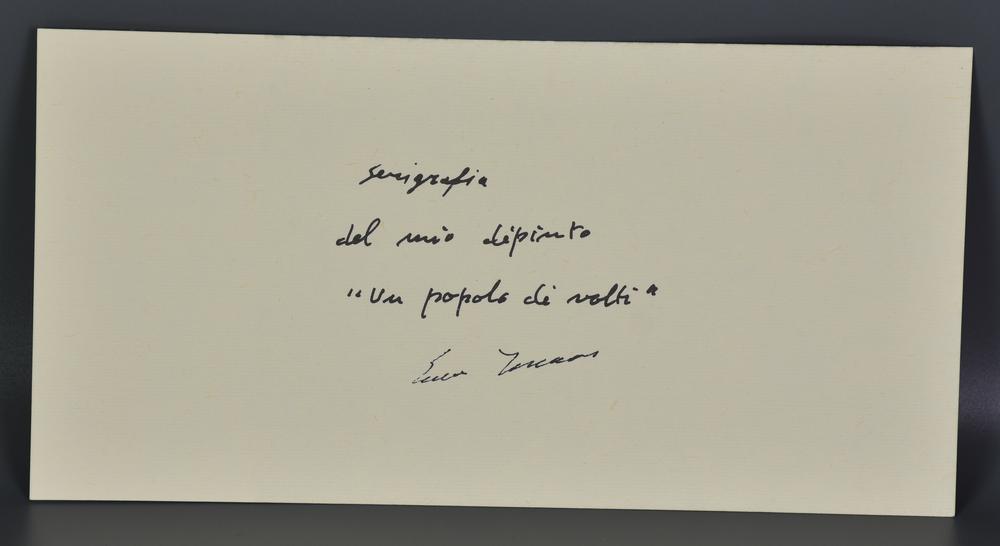 serigrafia
del mio dipinto
"Un popolo di volti"